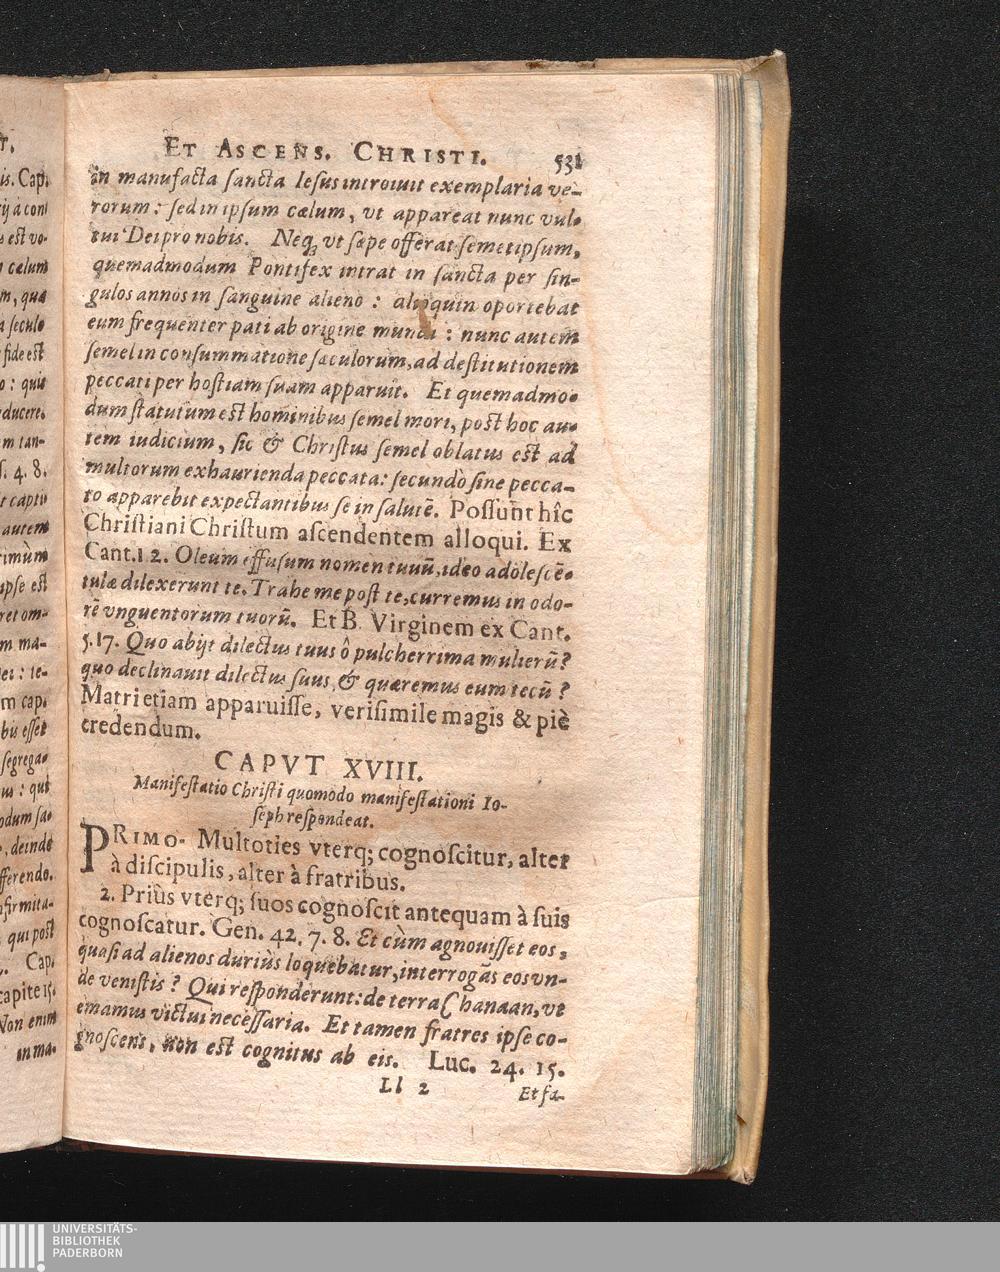 T.
is. Cap.
ij á cont
s est vo-
n cælum
m, quæ
a seculo
fide est
o : quis
ducere.
m tan-
s. 4. 8.
t captiv
autem
rimùm
ipse est
ret om-
m ma-
ei : te-
m cap.
bis esset
segrega-
us : qui
odum sa-
, deinde
fferendo.
nfirmita-
qui post
Cap.
capite 15.
Non enim
in ma-
ET ASCENS. CHRISTI. 531
in manufacta sancta Iesus introiuit exemplaria ve-
rorum : sed in ipsum cælum, vt appareat nunc vul-
tui Dei pro nobis. Neq; vt sæpe offerat semetipsum,
quemadmodum Pontifex intrat in sancta per sin-
gulos annos in sanguine alieno : alioquin oportebat
eum frequenter pati ab origine mundi : nunc autem
semel in consummatione sæculorum, ad destitutionem
peccati per hostiam suam apparuit. Et quemadmo-
dum statutum est hominibus semel mori, post hoc au-
tem iudicium, sic & Christus semel oblatus est ad
multorum exhaurienda peccata : secundò sine pecca-
to apparebit expectantibus se in salutē. Possunt hîc
Christiani Christum ascendentem alloqui. Ex
Cant. 1 2. Oleum effusum nomen tuuū, ideo adolescē-
tulæ dilexerunt te. Trahe me post te, curremus in odo-
rē vnguentorum tuorū. Et B. Virginem ex Cant.
5. 17. Quo abijt dilectus tuus ô pulcherrima mulierū?
quo declinauit dilectus suus, & quæremus eum tecū ?
Matri etiam apparuisse, verisimile magis & piè
credendum.
CAPVT XVIII.
Manifestatio Christi quomodo manifestationi Io-
seph respondeat.
PRIMO. Multoties vterq; cognoscitur, alter
à discipulis, alter à fratribus.
2. Priùs vterq; suos cognoscit antequam à suis
cognoscatur. Gen. 42. 7. 8. Et cùm agnouisset eos,
quasi ad alienos duriùs loquebatur, interrogās eos vn-
de venistis ? Qui responderunt : de terra Chanaan, vt
emamus victui necessaria. Et tamen fratres ipse co-
gnoscens, non est cognitus ab eis. Luc. 24. 15.
Ll 2 Et fa-
UNIVERSITÄTS-
BIBLIOTHEK
PADERBORN